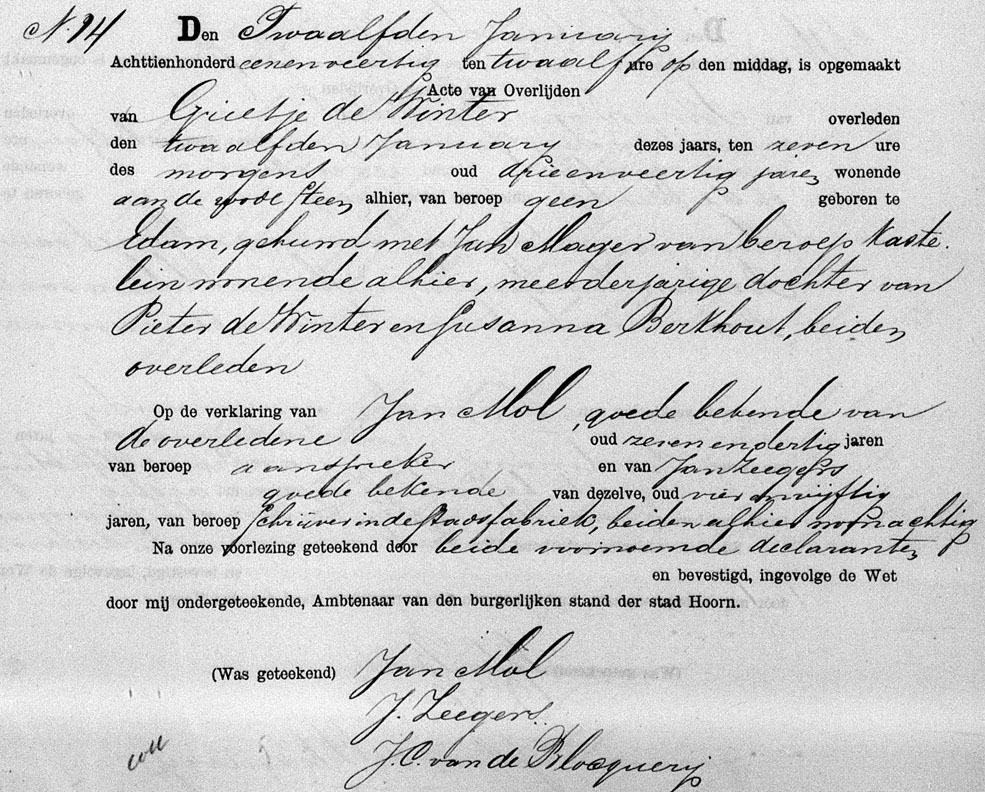 N. 14 Den Twaalfden January
Achttienhonderd eenenveertig ten twaalf ure op den middag, is opgemaakt
Acte van Overlijden
van Grietje de Winter overleden
den twaalfden January dezes jaars, ten zeven ure
des morgens oud drieenveertig jaren wonende
aan de roode steen alhier, van beroep geen geboren te
Edam, gehuwd met Jan Mager van beroep kaste-
lein wonende alhier, meerderjarige dochter van
Pieter de Winter en Susanna Berkhout, beiden
overleden
Op de verklaring van Jan Mol, goede bekende van
de overledene oud zeven en dertig jaren
van beroep aanspreker en van Jan Zeegers
goede bekende van dezelve, oud vier en vijftig
jaren, van beroep schrijver in de stadsfabriek, beiden alhier woonachtig
Na onze voorlezing geteekend door beide voornoemde declaranten
en bevestigd, ingevolge de Wet
door mij ondergeteekende, Ambtenaar van den burgerlijken stand der stad Hoorn.
(Was geteekend) Jan Mol
J. Zeegers
J. C. van de Blocquerij